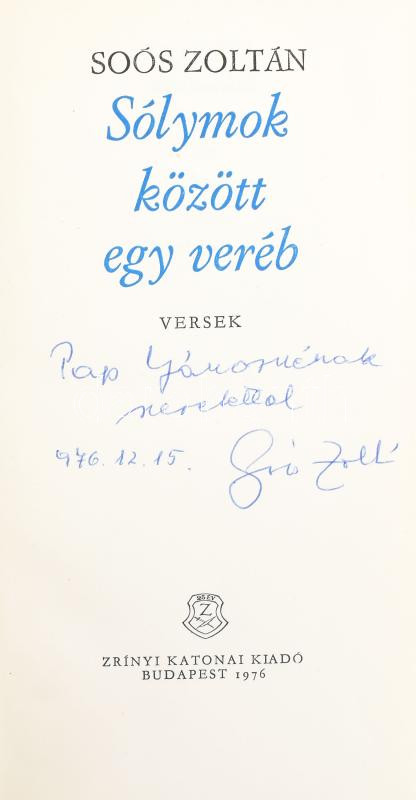 SOÓS ZOLTÁN
Sólymok
között
egy veréb
VERSEK
Pap Jánosnénak
szeretettel
976.12.15.
Soós Zoltán
25 ÉV
Z
ZRÍNYI KATONAI KIADÓ
BUDAPEST 1976